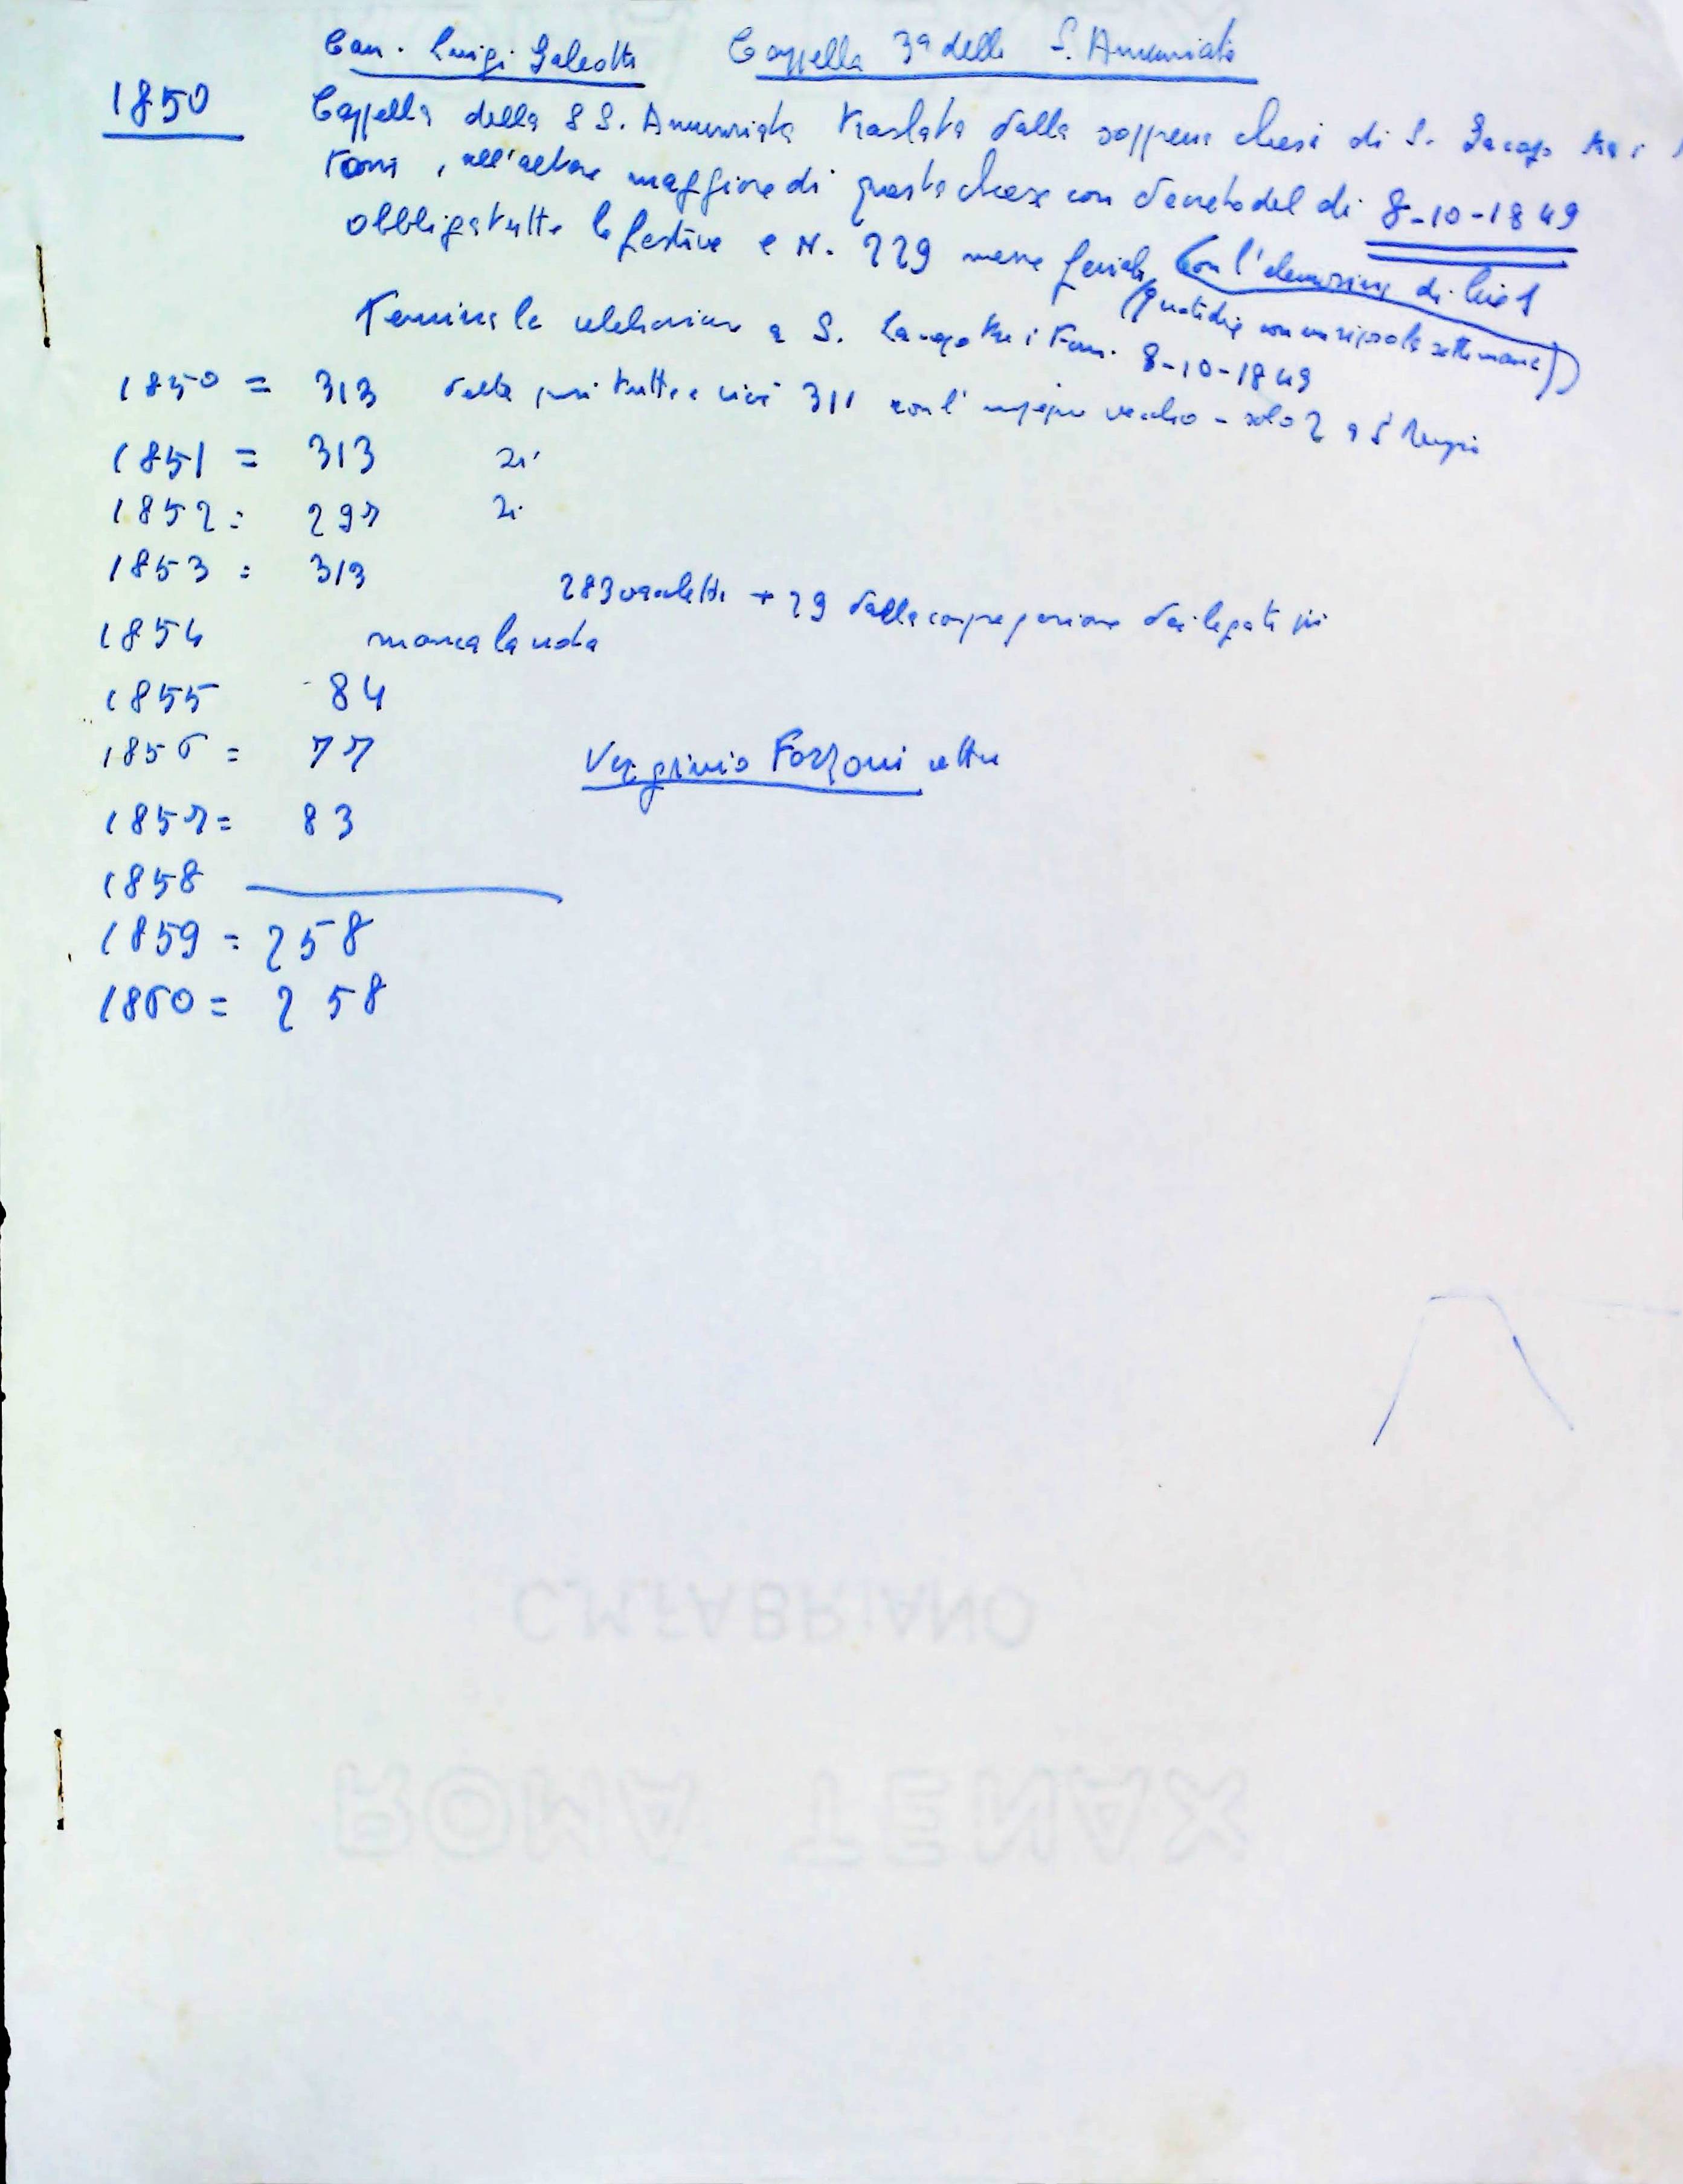 Can. Luigi Galeotti Cappella 3ª della S. Annunziata
1850 Cappella della SS. Annunziata traslata dalla soppressa chiesa di S. Jacopo tra i
Fossi, all'altare maggiore di questa chiesa con decreto del dì 8-10-1849
obbligo tutte le festive e N. 229 messe feriali (con l'elemosina di lire 1
(quotidie con un riposo la settimana))
Termina la celebrazione a S. Jacopo tra i Fossi 8-10-1849
1850 = 313 dette quasi tutte e cioè 311 con l' vecchio - solo 2 a S
1851 = 313 si
1852 = 297 si
1853 = 313
283 + 29 dalla congregazione dei legati pii
1854 manca la nota
1855 84
1856 = 77 Verginio Forzoni altre
1857 = 83
1858
1859 = 258
1860 = 258
C.M.FABRIANO
ROMA TENAX